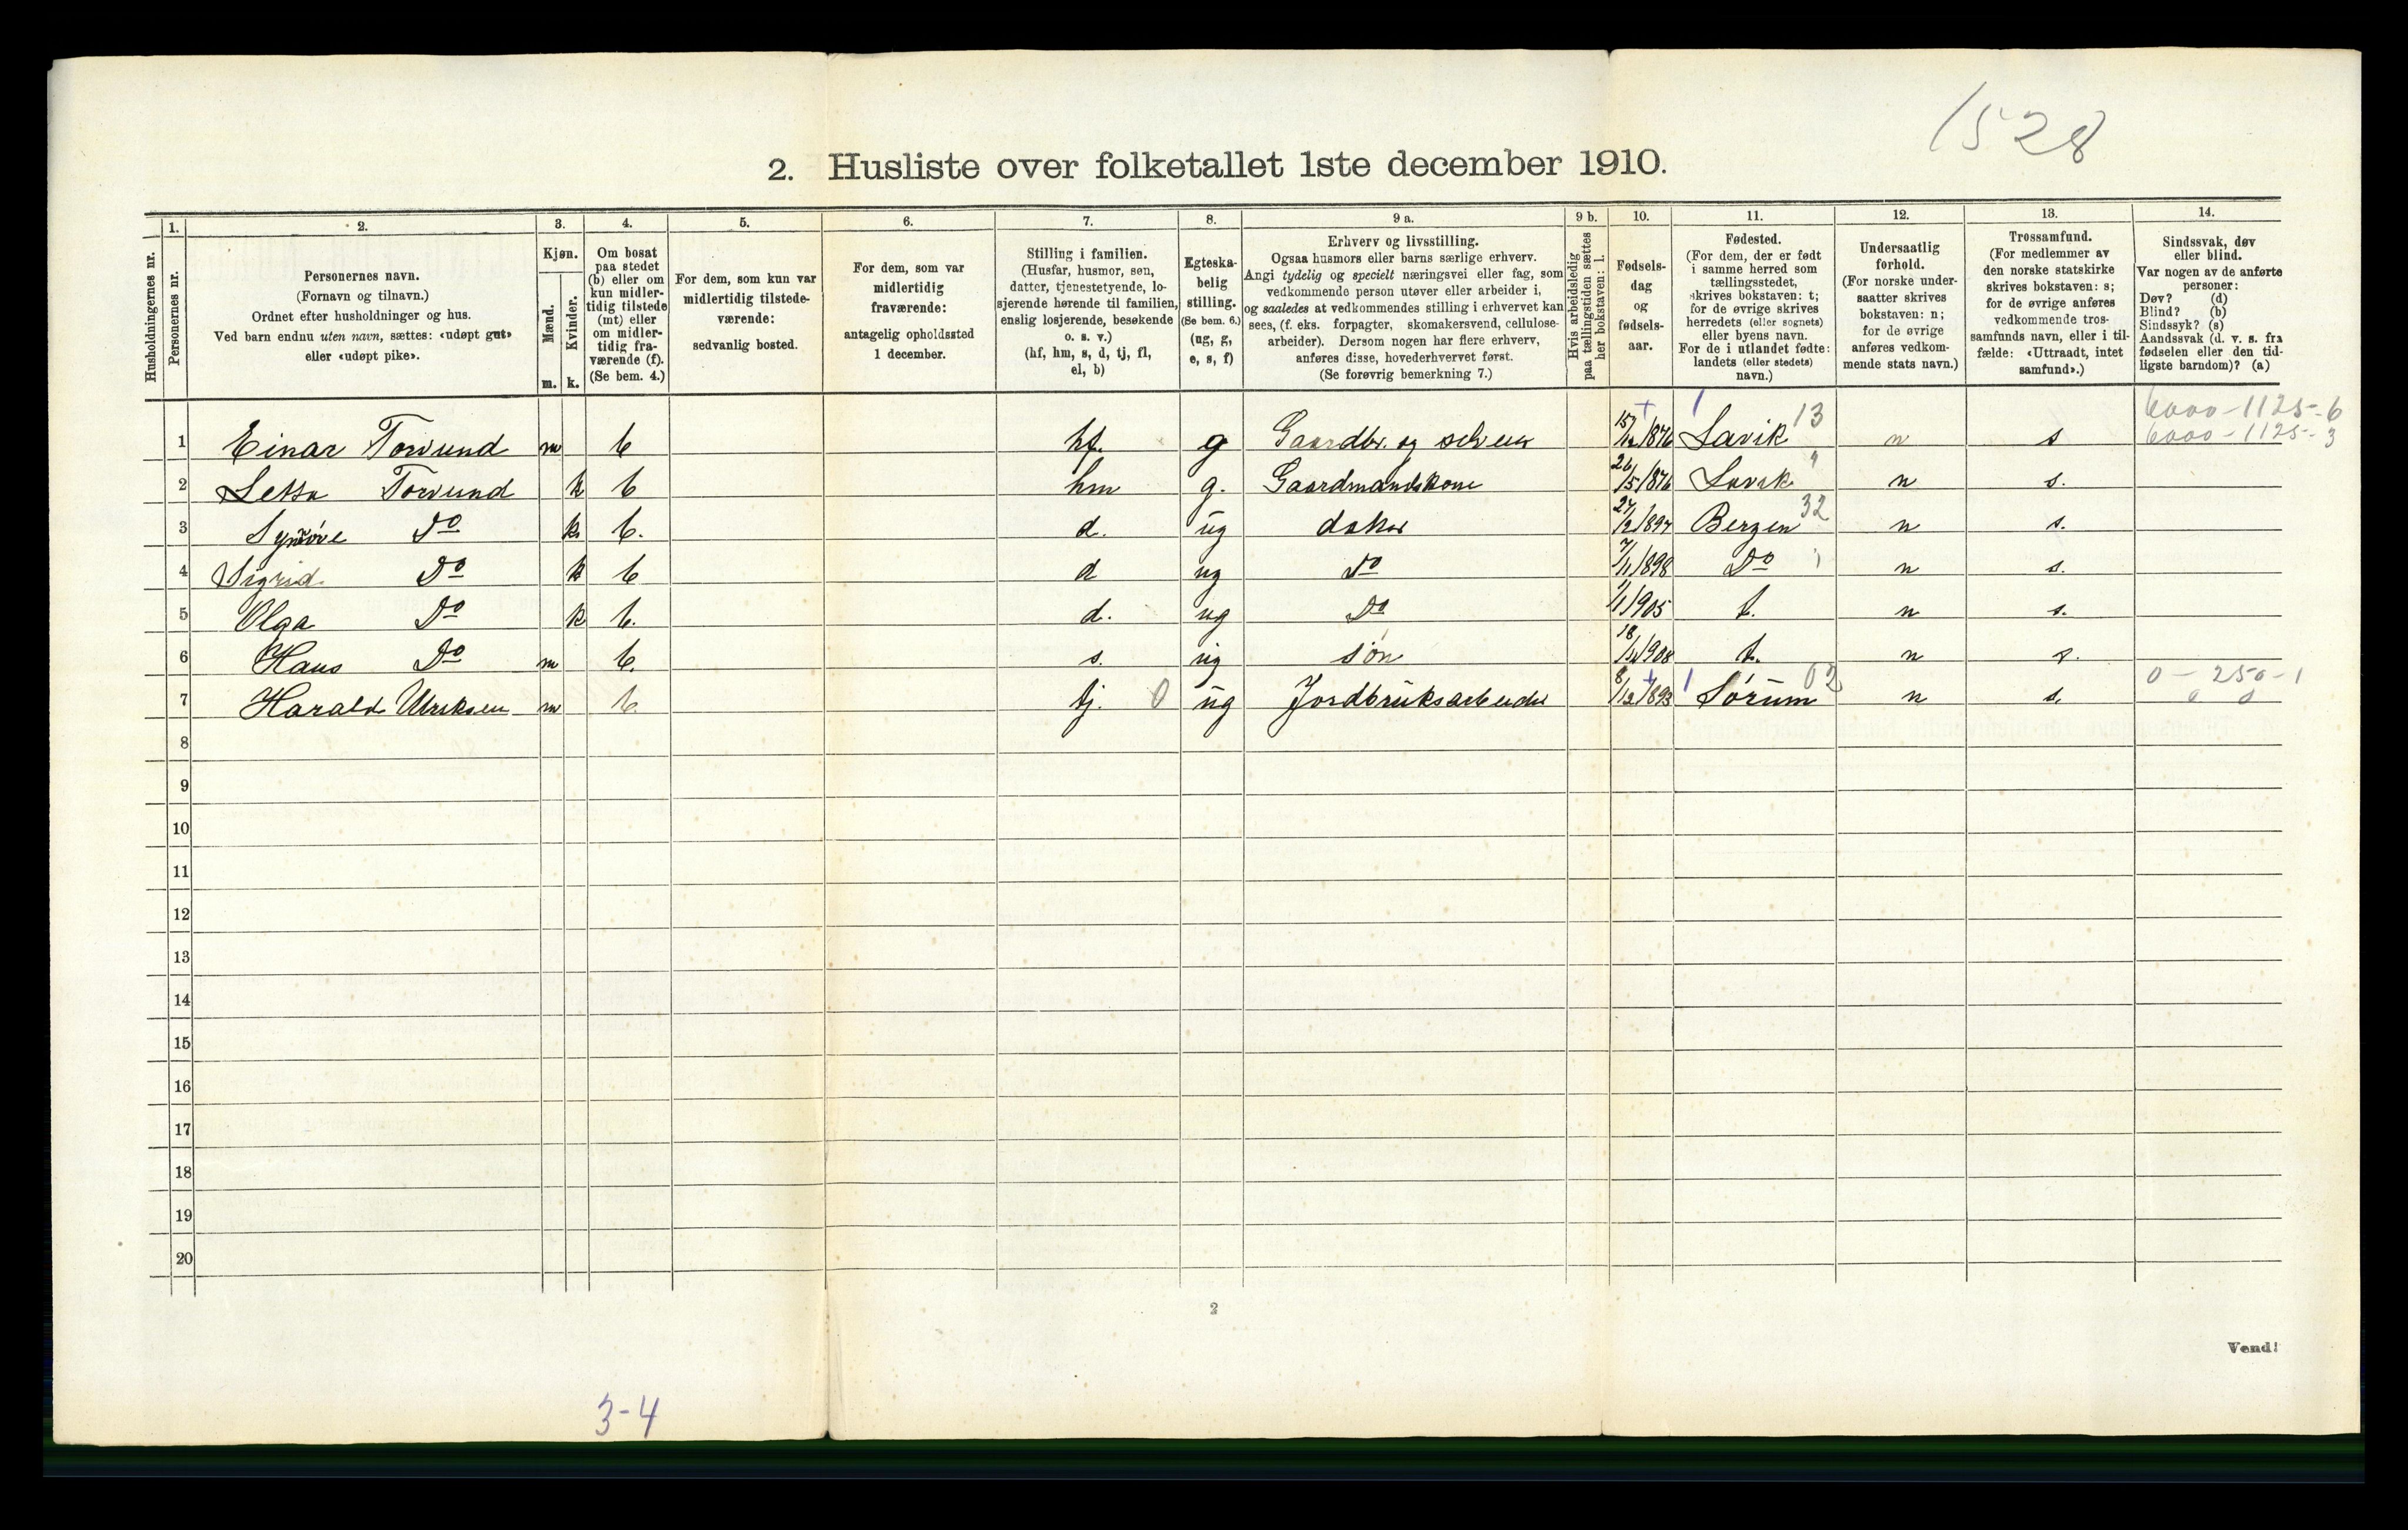 1528
2. Husliste over folketallet 1ste december 1910.
Husholdningernes nr.
1.
Personernes nr.
2.
Personernes navn.
(Fornavn og tilnavn.)
Ordnet efter husholdninger og hus.
Ved barn endnu uten navn, sættes: «udøpt gut»
eller «udøpt pike».
3.
Kjøn.
Mænd.
Kvinder.
m. k.
4.
Om bosat
paa stedet
(b) eller om
kun midler-
tidig tilstede
(mt) eller
om midler-
tidig fra-
værende (f).
(Se bem. 4.)
5.
For dem, som kun var
midlertidig tilstede-
værende:
sedvanlig bosted.
6.
For dem, som var
midlertidig
fraværende:
antagelig opholdssted
1 december.
7.
Stilling i familien.
(Husfar, husmor, søn,
datter, tjenestetyende, lo-
sjerende hørende til familien,
enslig losjerende, besøkende
o. s. v.)
(hf, hm, s, d, tj, fl,
el, b)
8.
Egteska-
belig
stilling.
(Se bem. 6.)
(ug, g,
e, s, f)
9 a.
Erhverv og livsstilling.
Ogsaa husmors eller barns særlige erhverv.
Angi tydelig og specielt næringsvei eller fag, som
vedkommende person utøver eller arbeider i,
og saaledes at vedkommendes stilling i erhvervet kan
sees, (f. eks. forpagter, skomakersvend, cellulose-
arbeider). Dersom nogen har flere erhverv,
anføres disse, hovederhvervet først.
(Se forøvrig bemerkning 7.)
9 b.
Hvis arbeidsledig
paa tællingstiden sættes
her bokstaven: l.
10.
Fødsels-
dag
og
fødsels-
aar.
11.
Fødested.
(For dem, der er født
i samme herred som
tællingsstedet,
skrives bokstaven: t;
for de øvrige skrives
herredets (eller sognets)
eller byens navn.
For de i utlandet fødte:
landets (eller stedets)
navn.)
12.
Undersaatlig
forhold.
(For norske under-
saatter skrives
bokstaven: n;
for de øvrige
anføres vedkom-
mende stats navn.)
13.
Trossamfund.
(For medlemmer av
den norske statskirke
skrives bokstaven: s;
for de øvrige anføres
vedkommende tros-
samfunds navn, eller i til-
fælde: «Uttraadt, intet
samfund».)
14.
Sindssvak, døv
eller blind.
Var nogen av de anførte
personer:
Døv? (d)
Blind? (b)
Sindssyk? (s)
Aandssvak (d. v. s. fra
fødselen eller den tid-
ligste barndom)? (a)
6000-1125-6
1 Einar Torvund m b hf. g Gaardbr. og selveier 1876 Lavik 13 n s 6000-1125-3
2 Torvund k b hm g. Gaardmandskone 26/5 1876 Lavik n s.
3 Synnöve Do k b. d. ug datter 27/2 1897 Bergen 32 n s.
4 Sigrid Do k b d ug Do 7/1 1898 Do n s.
5 Olga Do k b. d. ug Do 1/1 1905 t. n s.
6 Hans Do m b. s. ug sön 1908 t. n s.
7 Harald Ulriksen m b. tj. 0 ug Jordbruksarbeider 8/12 1893 Sörum 02 n s. 0-250-1
0 0
8
9
10
11
12
13
14
15
16
17
18
19
20
2
Vend!
3-4